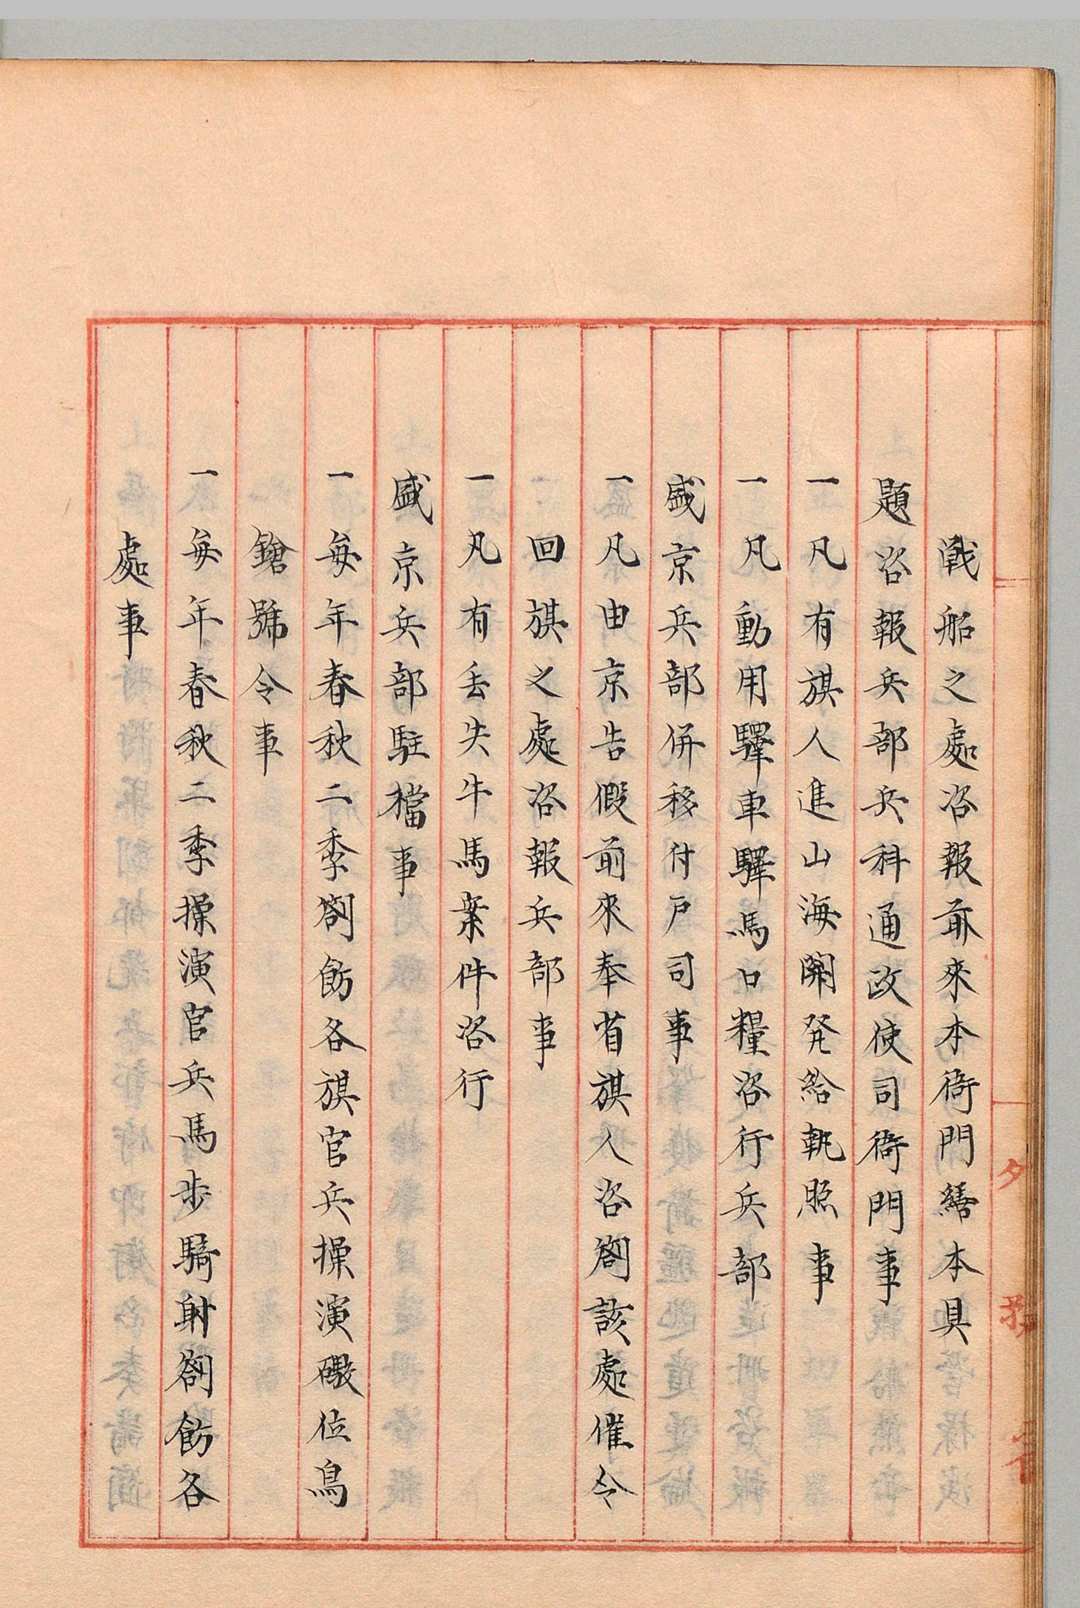 戰船之處咨報前來本衙門繕本具
題咨報兵部兵科通政使司衙門事
一凡有旗人進山海關発給執照事
一凡動用驛車驛馬口糧咨行兵部
盛京兵部併移付戶司事
一凡由京告假前來奉省旗人咨劄該處催令
回旗之處咨報兵部事
一凡有丟失牛馬案件咨行
盛京兵部駐檔事
一每年春秋二季劄飭各旗官兵操演礮位鳥
鎗號令事
一每年春秋二季操演官兵馬步騎射劄飭各
處事